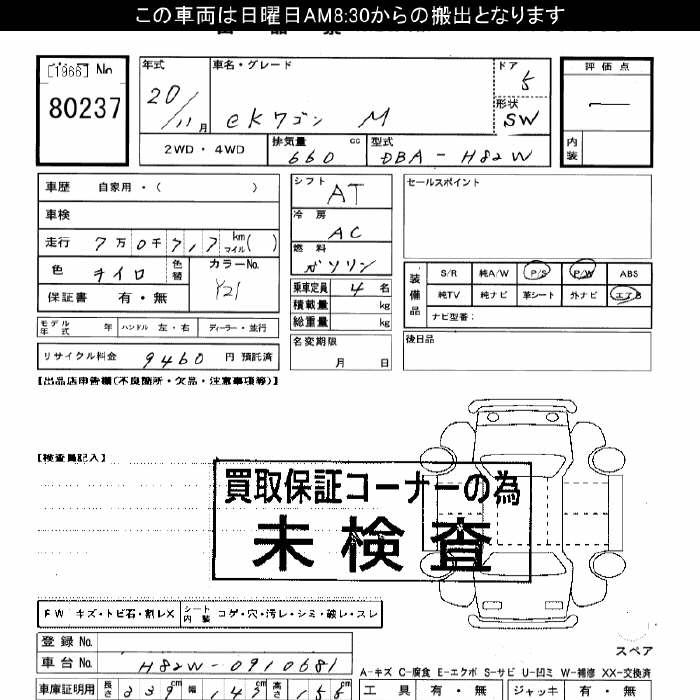 この車両は日曜日AM8:30からの搬出となります
[1966] No
80237
年式 車名・グレード ドア 評価点
20/11月 eKワゴン M 5 —
形状 SW
2WD・4WD 排気量 660 cc 型式 DBA-H82W 内装
車歴 自家用・( ) シフト AT セールスポイント
車検 冷房 AC
走行 7万0千7,1,7 km マイル( ) 燃料 ガソリン
色 キイロ 色替 カラーNo. Y21 装備品 S/R 純A/W P/S P/W ABS
乗車定員 4 名 純TV 純ナビ 革シート 外ナビ エアB
保証書 有・無 積載量 kg ナビ型番:
モデル年式 年 ハンドル 左・右 ディーラー・並行 総重量 kg 後日品
リサイクル料金 9460 円 預託済 名変期限 月 日
【出品店申告欄(不良箇所・欠品・注意事項等)】
【検査員記入】
買取保証コーナーの為
未検査
FW キズ・トビ石・割レX シート内装 コゲ・穴・汚レ・シミ・破レ・スレ
登録No.
スペア
車台No. H82W-0910681
A-キズ C-腐食 E-エクボ S-サビ U-凹ミ W-補修 XX-交換済
車庫証明用 長さ 339 cm 幅 147 cm 高さ 155 cm 工具 有・無 ジャッキ 有・無